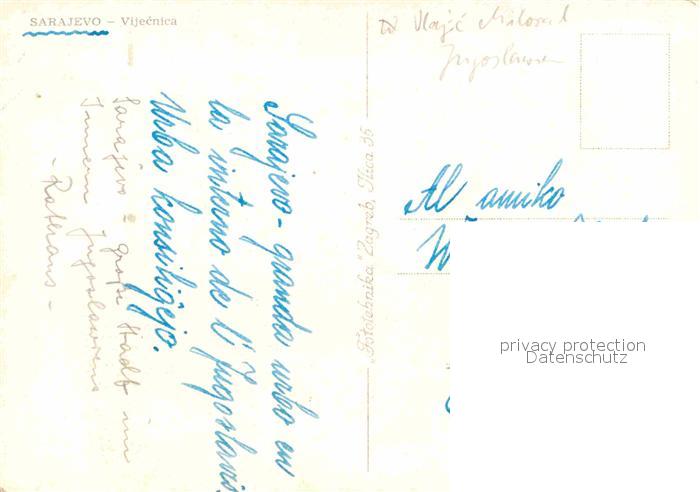 SARAJEVO – Viječnica
Vlajić Milorad
Jugoslawien
Sarajevo - granda urbo en
la interno de l' Jugoslavi
Urba konsiliĝejo.
Sarajevo - große Stadt im
Innern Jugoslawiens
- Rathaus -
„Fototehnika" Zagreb, Ilica 35
Al amiko
privacy protection
Datenschutz